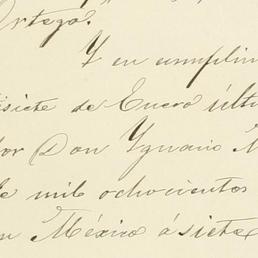 Ortega.
Y en cumplim
isiete de Enero últi
or Don Ygnacio M
de mil ochocientos
n México á siete